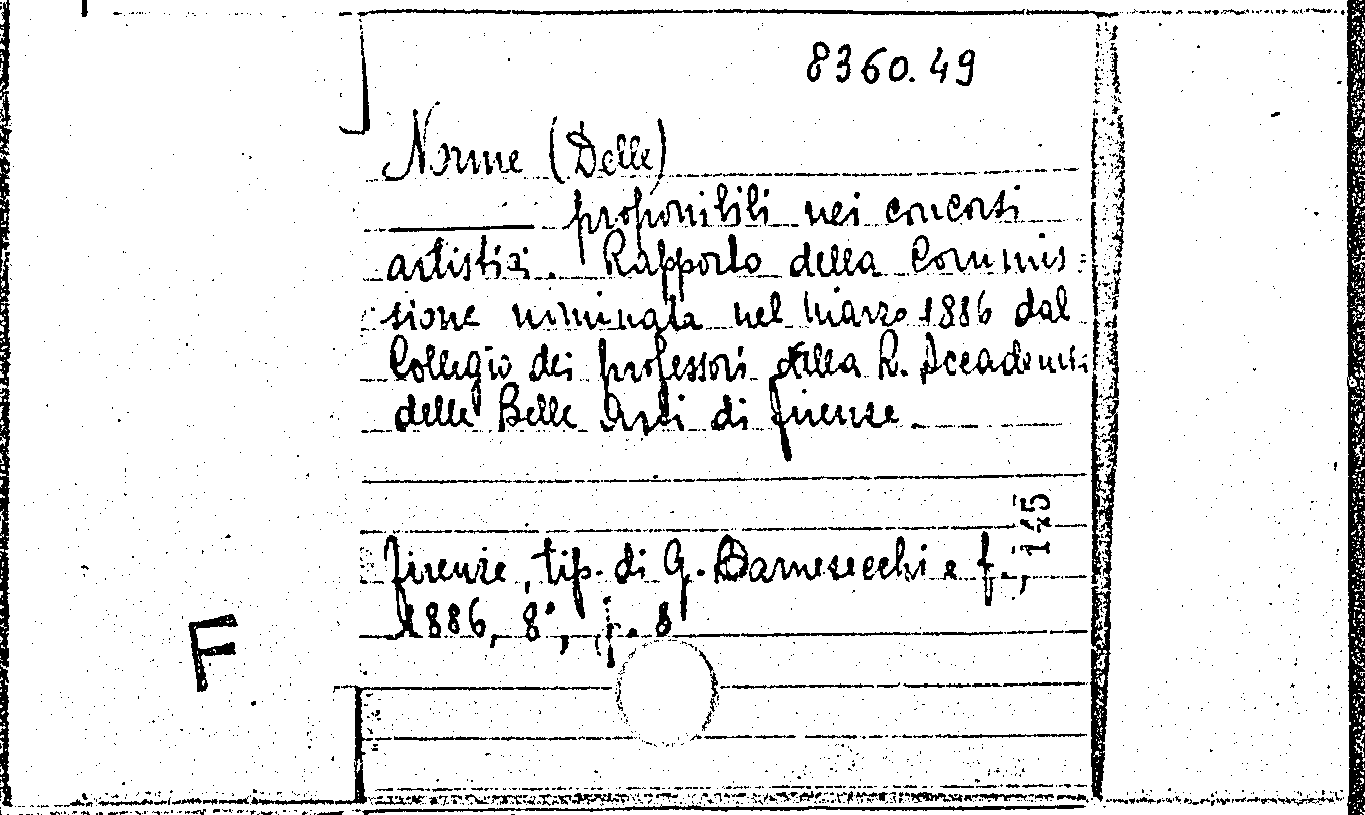 8360.49
Norme (Delle)
proponibili nei concorsi
artistici. Rapporto della Commis=
sione nominata nel marzo 1886 dal
Collegio dei professori della R. Accademia
delle Belle Arti di Firenze.
145
Firenze, tip. di G. Barnesecchi e f.,
1886, 8°, p. 8
F